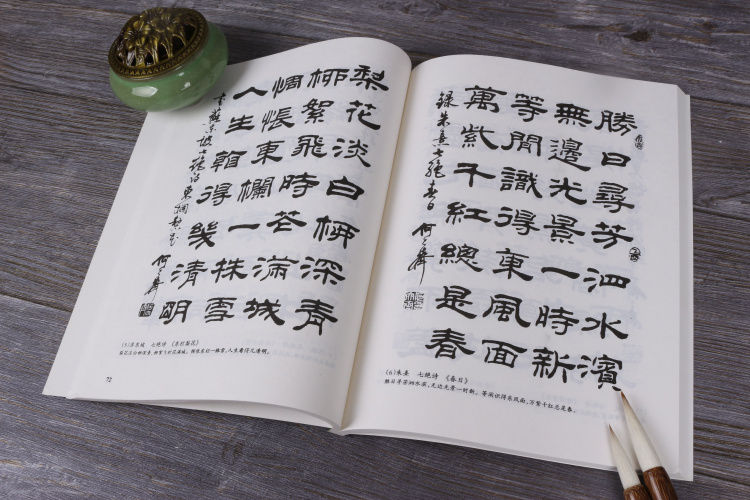 梨花淡白柳深青
柳絮飛時花滿城
惆悵東欄一株雪
人生看得幾清明
書蘇東坡七絕詩東欄梨花
(5)苏东坡 七绝诗 《东栏梨花》
梨花淡白柳深青，柳絮飞时花满城。惆怅东栏一株雪，人生看得几清明。
72
勝日尋芳泗水濱
無邊光景一時新
等閒識得東風面
萬紫千紅總是春
錄朱熹七絕春日
(6)朱熹 七绝诗 《春日》
胜日寻芳泗水滨，无边光景一时新。等闲识得东风面，万紫千红总是春。